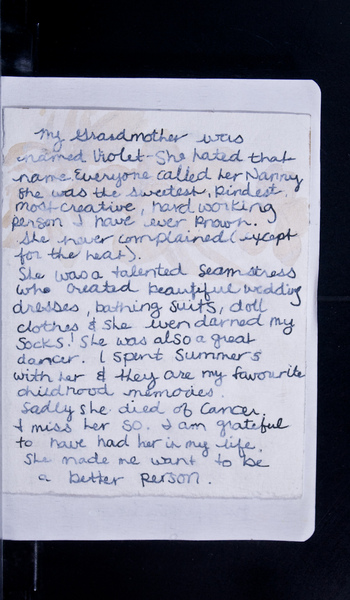 My Grandmother was
named Violet - She hated that
name. Everyone called her Nanny
She was the sweetest, kindest
most creative, hard working
person I have ever known.
She never complained (except
for the heat).
She was a talented seamstress
who created beautiful wedding
dresses, bathing suits, doll
clothes & she even darned my
socks! She was also a great
dancer. I spent Summers
with her & they are my favourite
childhood memories.
Sadly she died of Cancer.
I miss her so. I am grateful
to have had her in my life.
She made me want to be
a better person.